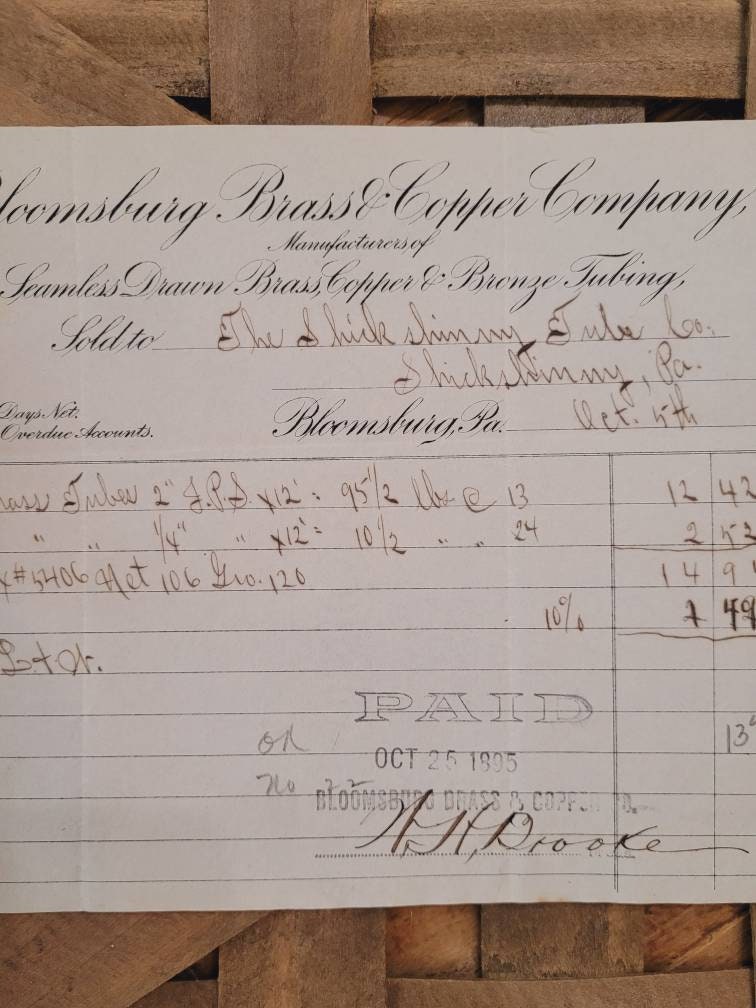 loomsburg Brass & Copper Company,
Manufacturers of
Seamless Drawn Brass, Copper & Bronze Tubing,
Sold to The Shickshinny Tube Co.
Shickshinny, Pa.
Days Net.
Overdue Accounts.
Bloomsburg, Pa. Oct. 5th
rass Tubes 2" I.P.S. x12' = 95 1/2 lbs @ 13 12 42
" " 1/4" " x12' = 10 1/2 " " 24 2 52
x #5406 Net 106 Gro. 120 14 9
10% 1 49
PAID
OK
13
OCT 25 1895
No
BLOOMSBURG BRASS & COPPER CO.
W. H. Brooke